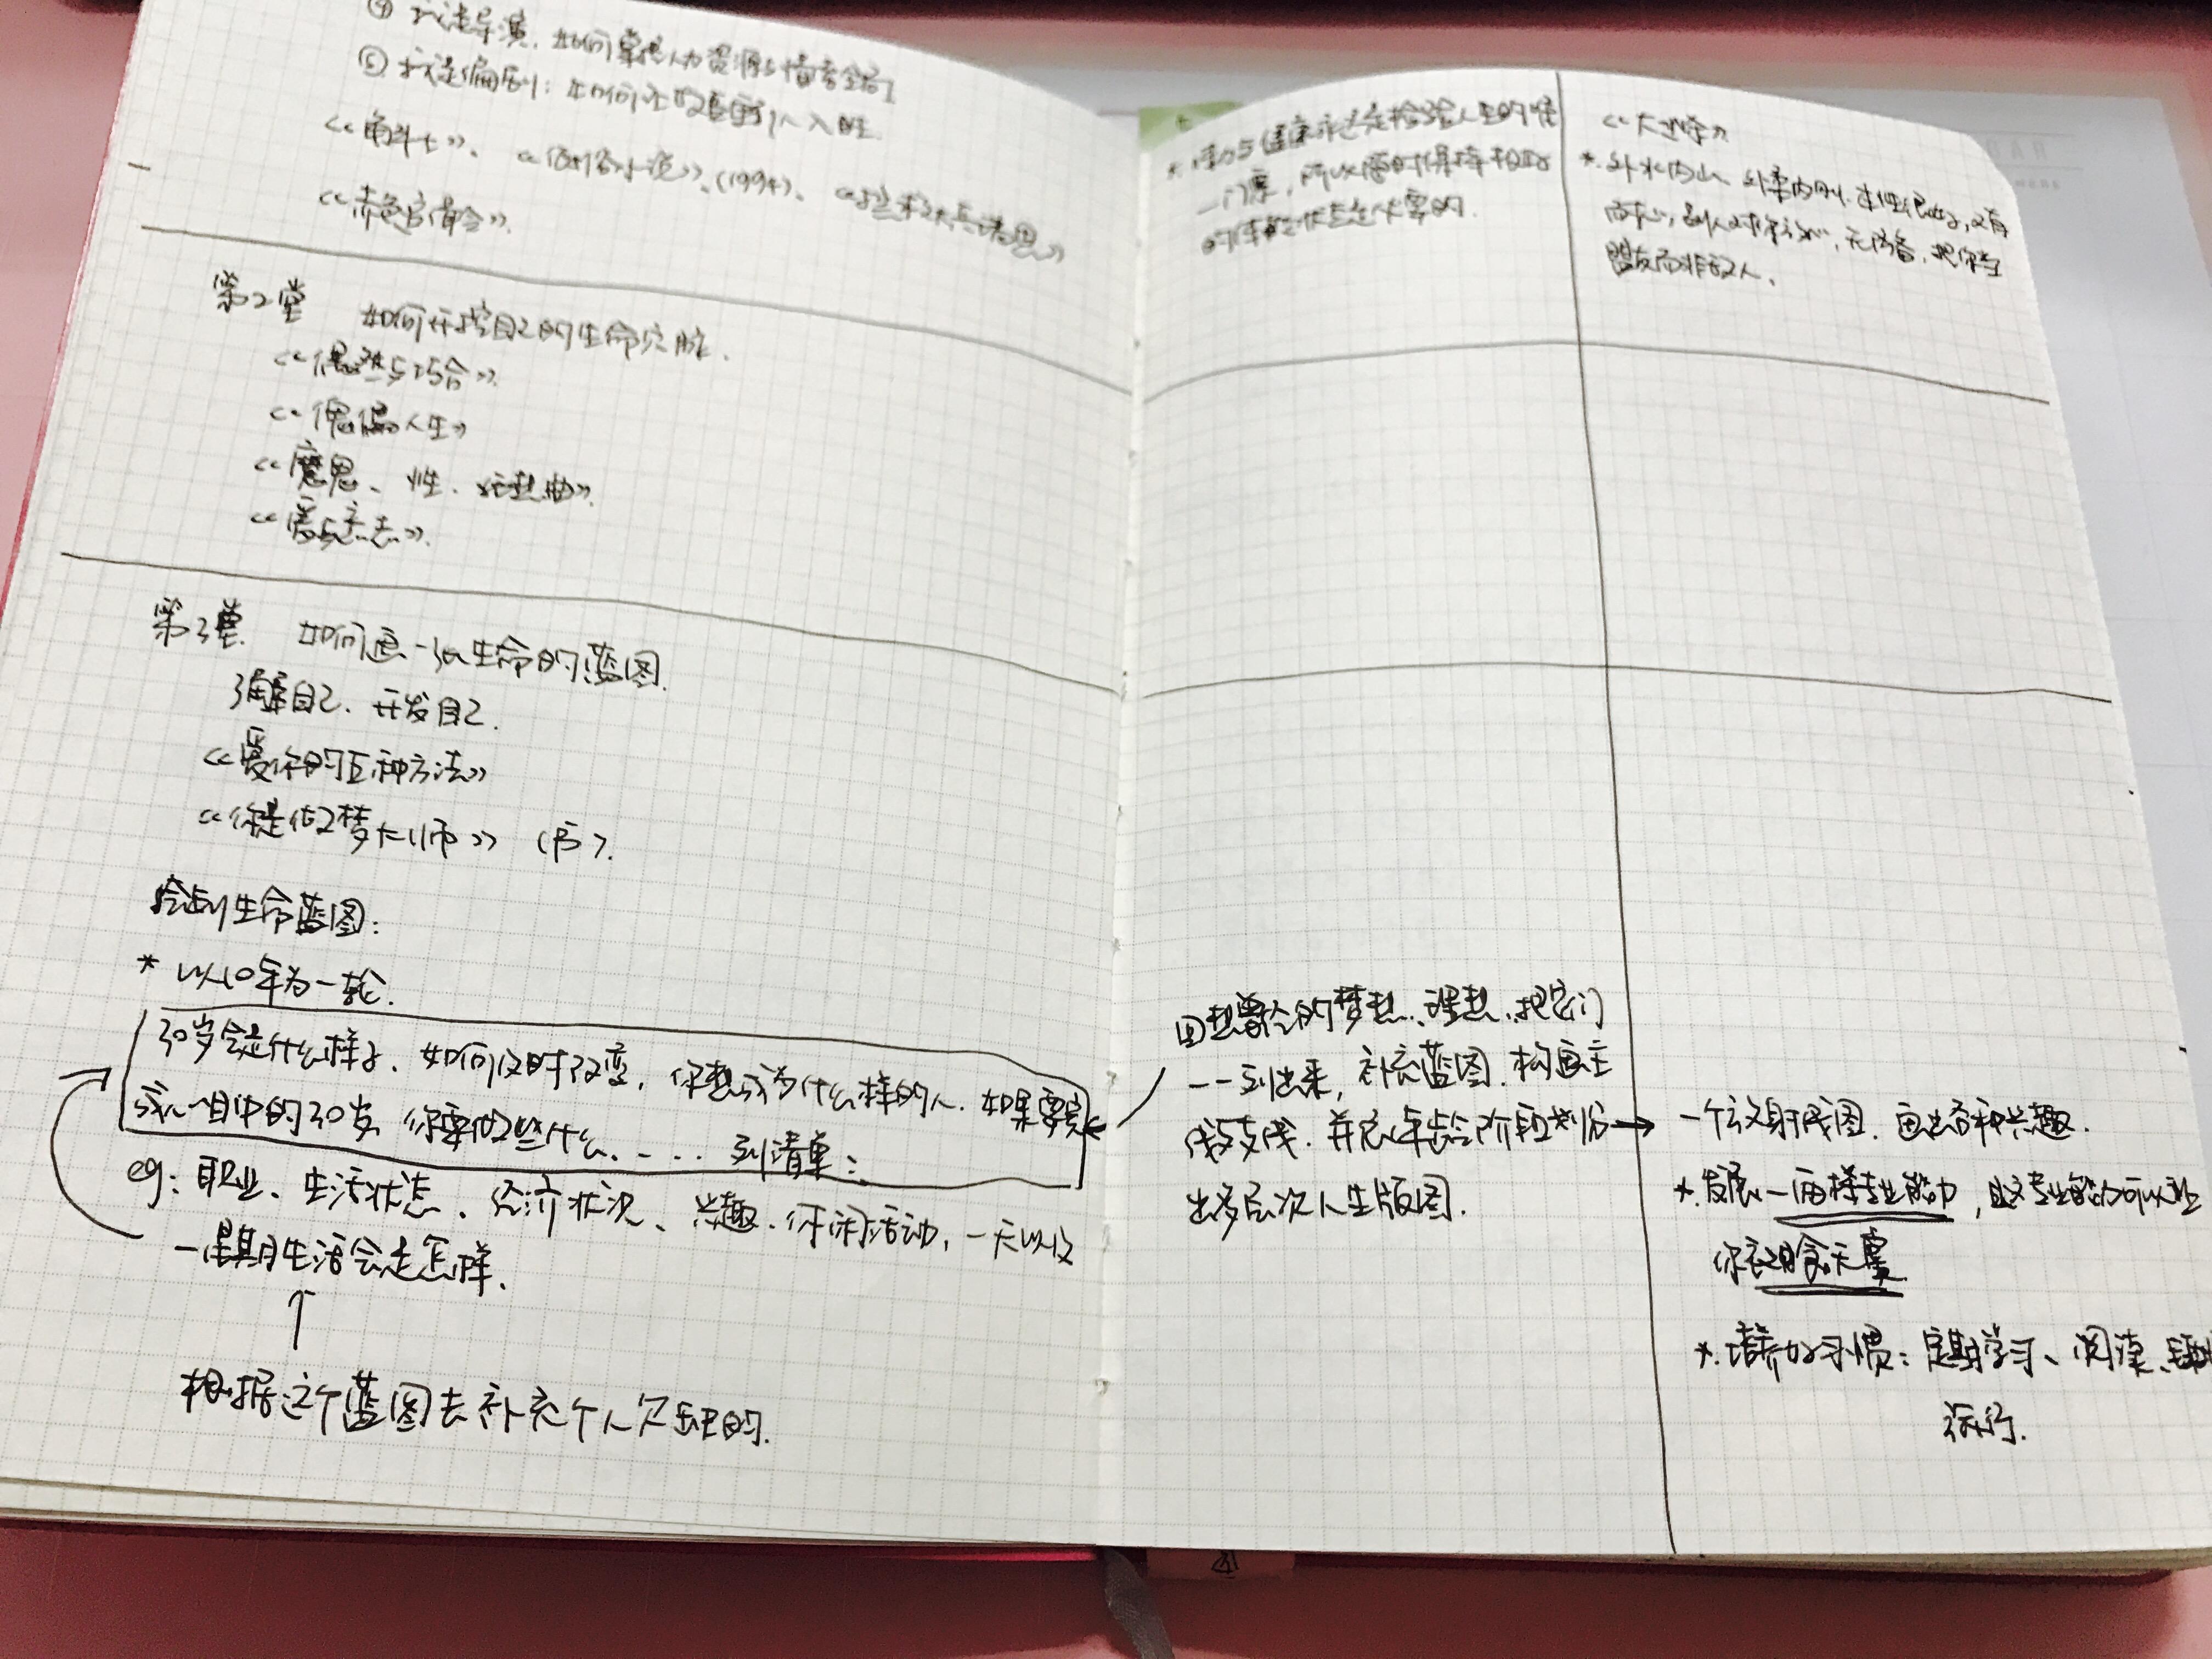 ④ 我是导演，如何掌握人力资源与情节全局
⑤ 我是编剧：如何让故事引人入胜.
《角斗士》、《低俗小说》(1994)、《拯救大兵瑞恩》
《赤色官令》.
第2堂 如何开挖自己的生命穴脉.
《偶然与巧合》.
《傀儡人生》
《魔鬼、性、狂想曲》.
《爱与意志》.
第3堂. 如何画一张生命的蓝图.
了解自己、开发自己.
《爱你的五种方法》
《你是做梦大师》(书).
绘制生命蓝图：
* 以10年为一轮.
30岁会是什么样子、如何及时改变，你想成为什么样的人. 如果要完
成心目中的30岁，你要做些什么. -... 列清单：
eg: 职业、生活状态、经济状况、兴趣、休闲活动，一天以及
一星期生活会是怎样.
↑
根据这个蓝图去补充个人欠缺的.
* 活力与健康永远是检验人生的唯
一门票，所以随时保持积极
的体能状态是必要的.
回想曾经的梦想、理想，把它们
一一列出来，补充蓝图. 构画主
线支线. 并以年龄阶段划分→
出多层次人生版图.
* 外水内山，外柔内刚. 本性很好，又有
而本心，别人对你放心，无防备，把你当
盟友而非敌人.
一个放射线图. 画出各种兴趣.
* 发展一两样专业能力，这专业能力可以让
你衣食无虞.
* 培养好习惯：定期学习、阅读、
旅行.